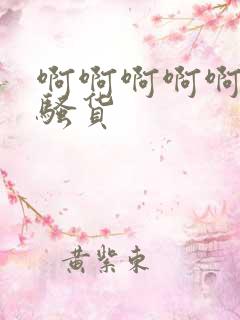 啊啊啊啊啊
骚货
黄紫东